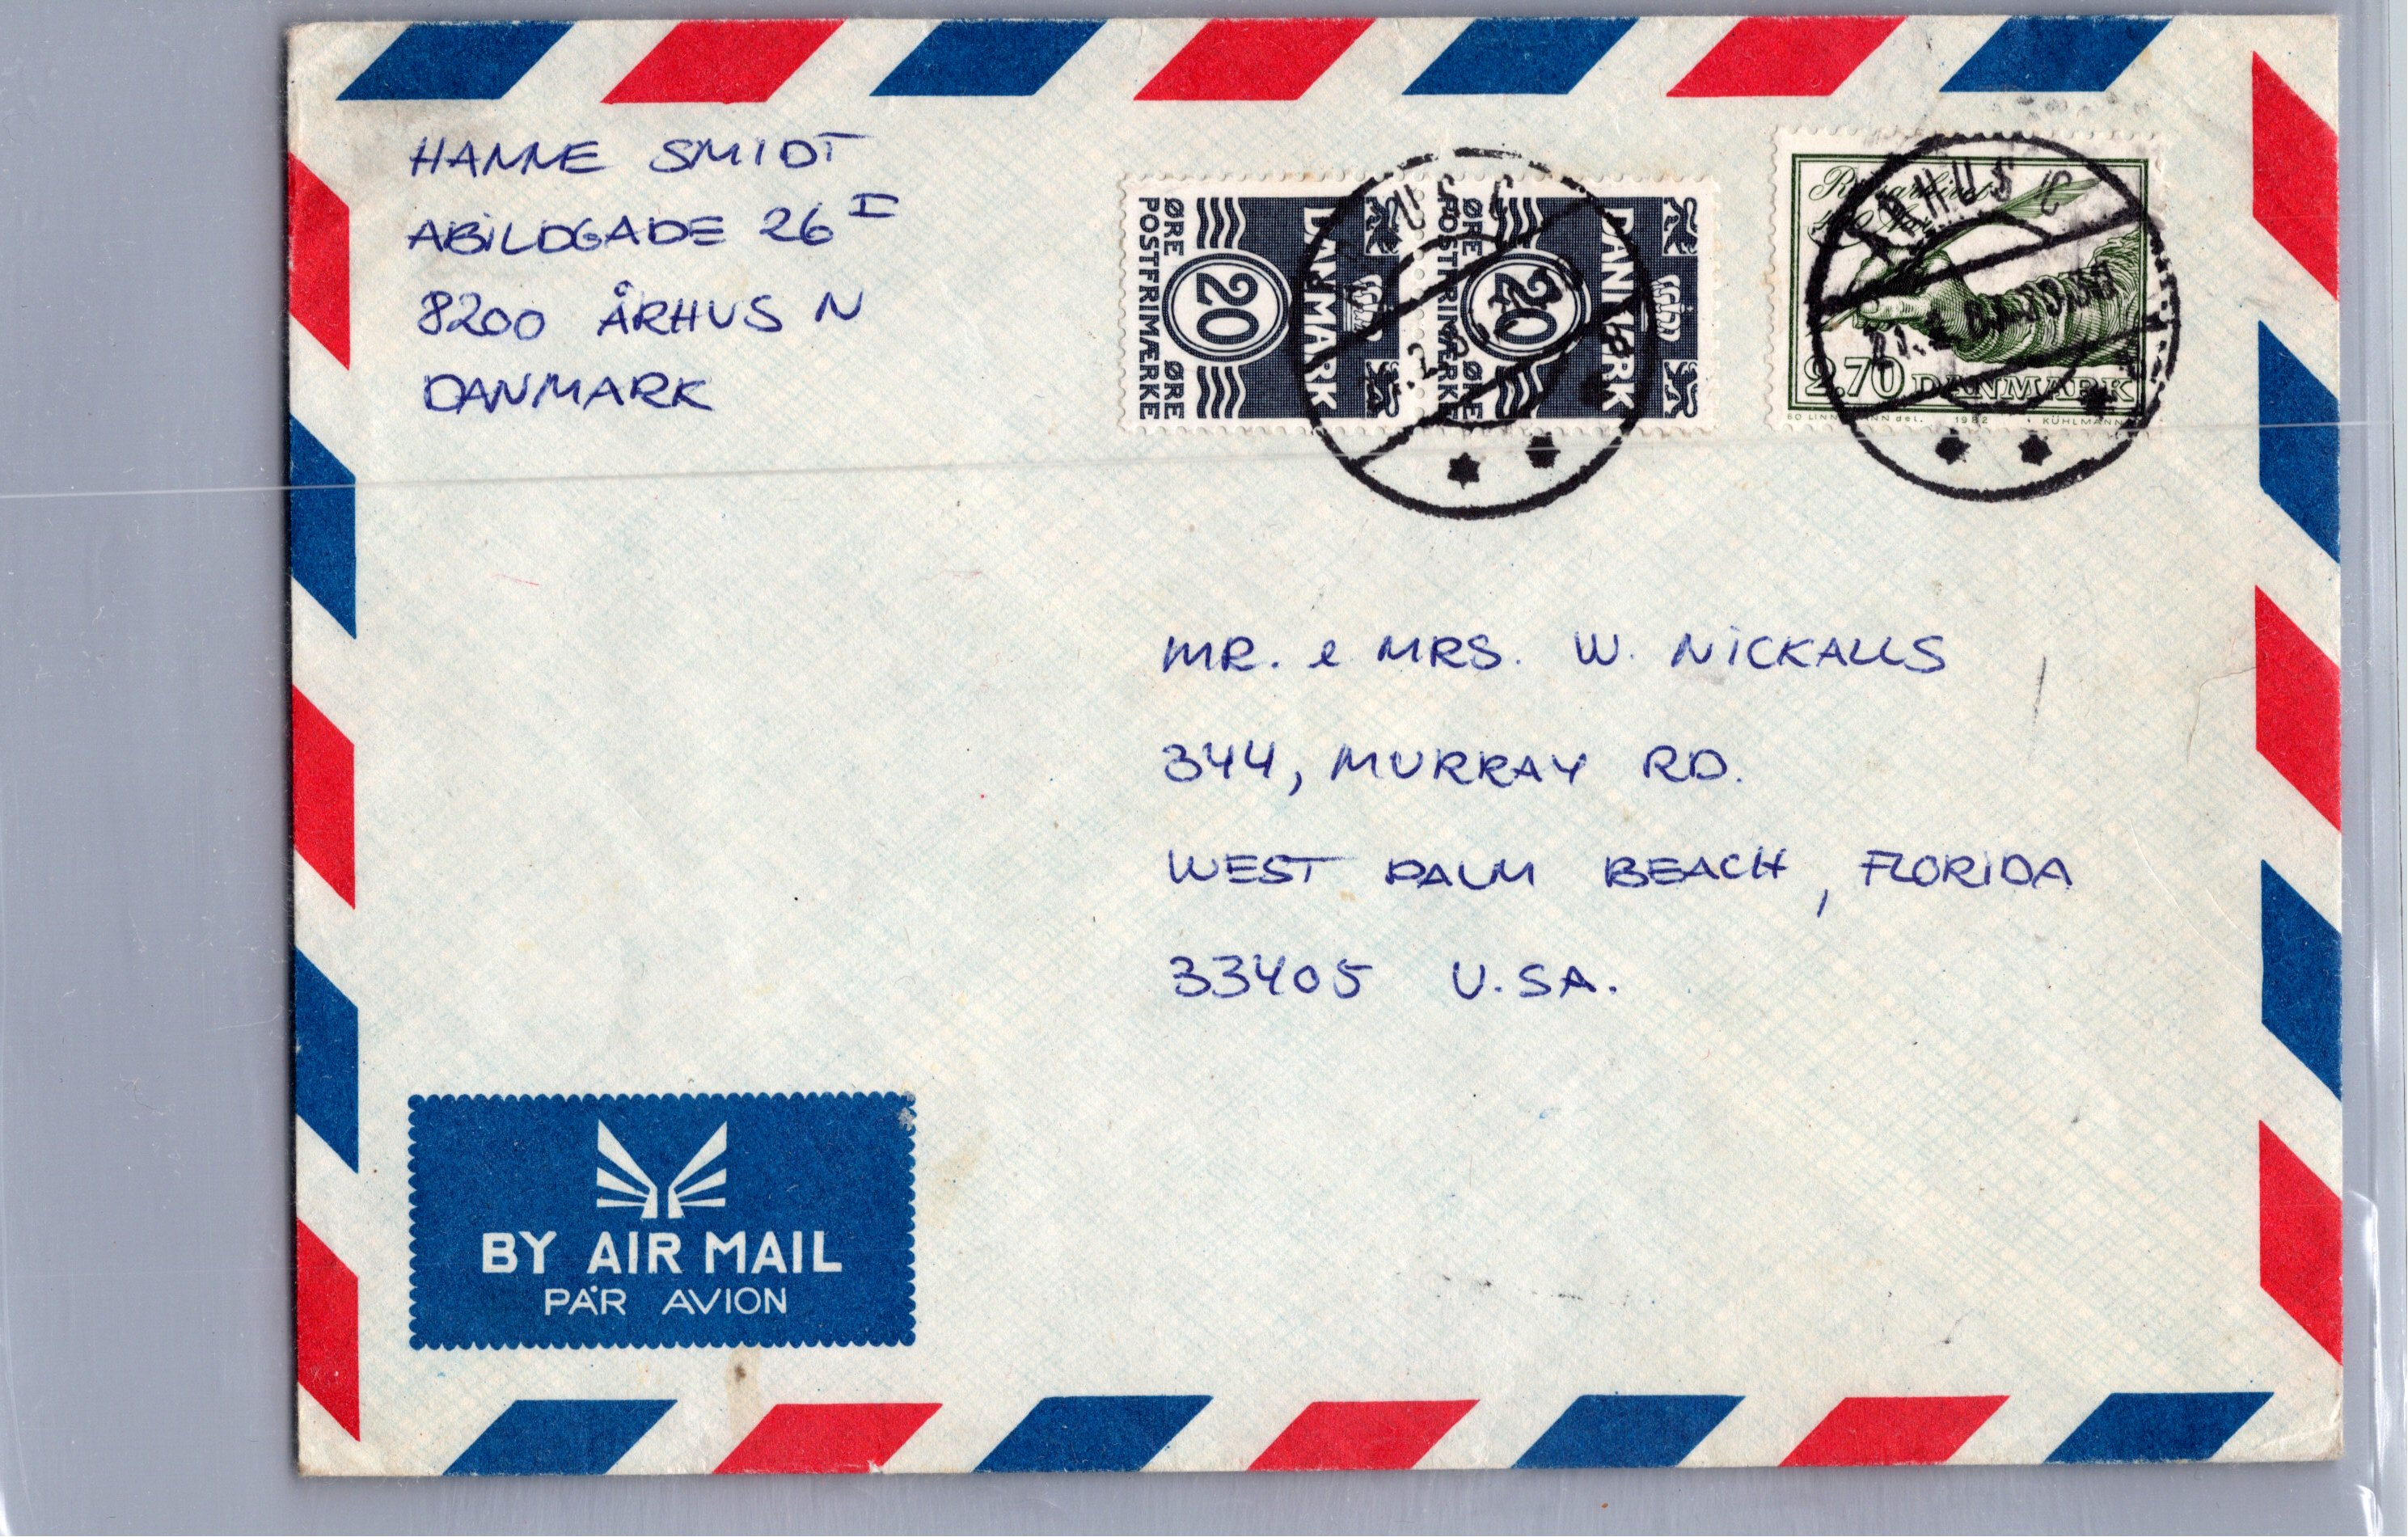 HANNE SMIDT
ABILDGADE 26 I
8200 ÅRHUS N
DANMARK
20
ØRE ØRE
POSTFRIMÆRKE
DANMARK
20
ØRE ØRE
POSTFRIMÆRKE
DANMARK
ÅRHUS C
2.70 DANMARK
1982 KÜHLMANN
MR. & MRS. W. NICKALLS
344, MURRAY RD.
WEST PALM BEACH, FLORIDA
33405 U.S.A.
BY AIR MAIL
PAR AVION